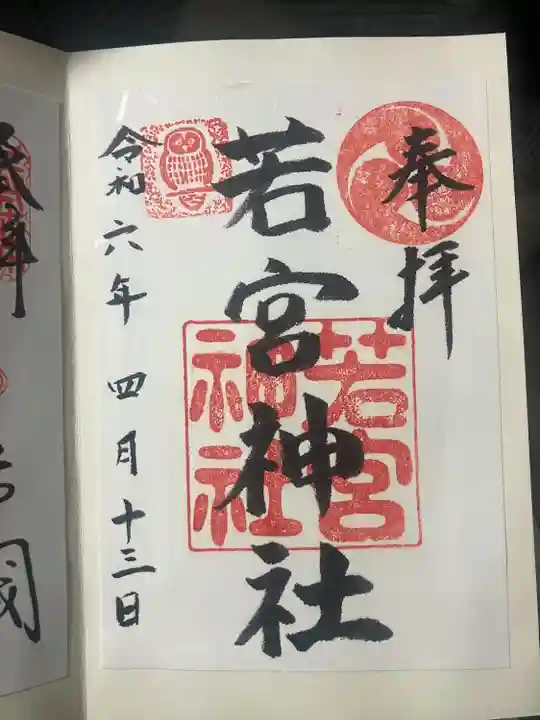 奉拝
若宮神社
若宮神社
令和六年 四月十三日